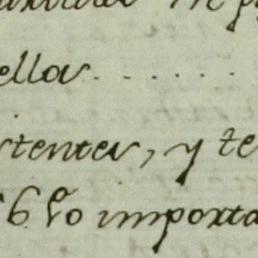 ellos.......
stentes, y te
6 lo importa